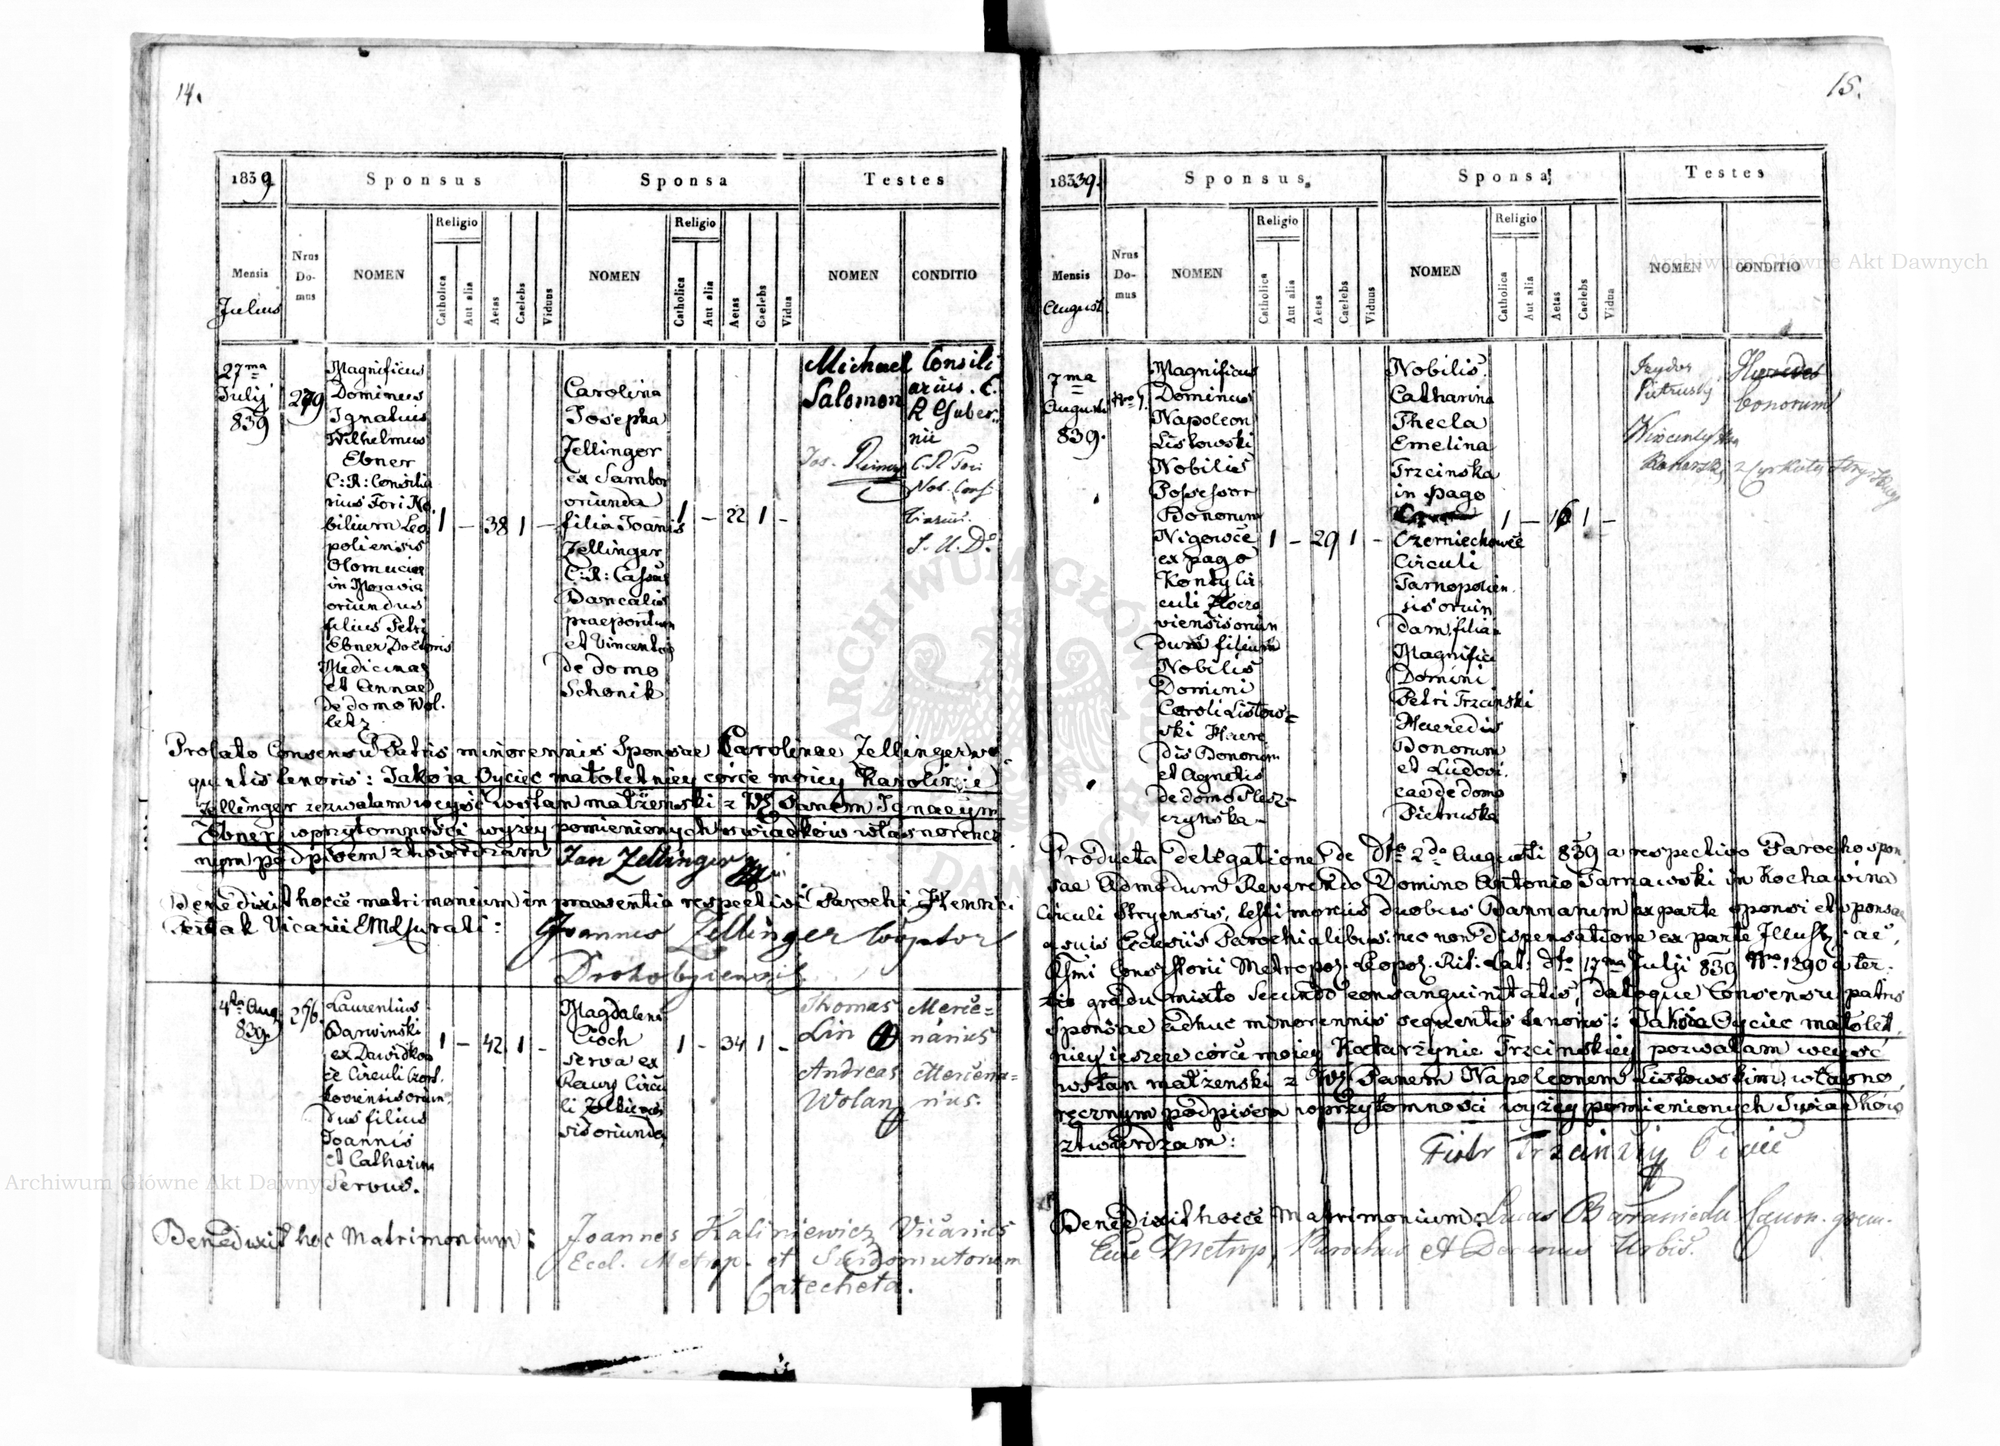 14.
1839
Sponsus
Sponsa
Testes
Mensis
Julius
Nrus
Do-
mus
NOMEN
Religio
Catholica
Aut alia
Aetas
Caelebs
Viduus
NOMEN
Religio
Catholica
Aut alia
Aetas
Caelebs
Vidua
NOMEN
CONDITIO
27ma
July
839
279
Magnificus
Dominus
Ignatius
Wilhelmus
Ebner
C: R: Consilia
rius Fori No.
bilium Leo
poliensis
Olomucia
in Moravia
oriundus
filius Petri
Ebner Doctoris
Medicinae
et Annae
de domo Wol.
letz
1 — 38 1 —
Carolina
Josepha
Zellinger
ex Sambor
oriunda
filia Joannis
Zellinger
C: R: Cassae
Bancalis
praepositum
et Vincentia
de domo
Schönik
1 — 22 1 —
Michael
Salomon
Consili
arius. C.
R Guber-
nii
Jos. Reiner
C. R. Fori
Nob. Cons
J. U. Dr.
Prolato Consensu Patris minorennis Sponsae Carolinae Zellinger se
quentis tenoris: Jako ja Oyciec małoletniey córce moiey Karolinie
Zellinger zezwalam weyść wstan małżenski z WJ Panem Ignacym
Ebner wprzytomności wyżey pomienionych świadków własnorencz
nym podpisem ztwierdzam Jan Zellinger
Benedixit hocce matrimonium in praesentia respectivi Parochi Henrici
Vicarii EM Curati: Joannes Zellinger Cooptor
Drohobyciensis
4ta Aug
839.
276.
Laurentius
Darwinski
ex Dawidkow
ce Circuli Czort.
koviensis oriun
dus filius
Joannis
et Catharina
Servus.
1 — 42 1 —
Magdalena
Cioch
serva ex
Rawy Circu
li Zolkiewi
sis oriunda
1 — 34 1 —
Thomas
Lin
Merce=
nárius
Andreas
Wolan
Mercena=
rius.
Benedixit hoc Matrimonium: Joannes Kaliniewicz Vicarius
Eccl. Metrop. et Surdomutorum
Catecheta.
15.
1839.
Sponsus
Sponsa
Testes
Mensis
August
Nrus
Do-
mus
NOMEN
Religio
Catholica
Aut alia
Aetas
Caelebs
Viduus
NOMEN
Religio
Catholica
Aut alia
Aetas
Caelebs
Vidua
NOMEN
CONDITIO
7ma
Augusti
839.
Magnificus
Dominus
Napoleon
Listowski
Nobilis
Possessor
Bonorum
Nigowce
ex pago
Konty Cir
culi Złoczo
viensis oriun
dus filius
Nobilis
Domini
Caroli Listow=
ski Haere
dis Bonorum
et Agnetis
de domo Plesz-
czyńska
1 — 29 1 —
Nobilis
Catharina
Thecla
Emelina
Trzcinska
in pago
Czerniechowce
Circuli
Tarnopolien
sis oriun
dam filia
Magnifici
Domini
Petri Trzcinski
Haeredis
Bonorum
et Ludovi.
cae de domo
Pietruska
1 — 16 1 —
Izydor
Pietruski
Haeredes
Bonorum
Wincenty
Producta delegatione de dto 2da Augusti 839 a respectivo Parocho spon.
sae Admodum Reverendo Domino Antonio Tarnawski in Kochawina
Circuli Stryensis, testimoniis duobus Bannarum ex parte sponsi et sponsae
a suis Ecclesiis Parochialibus nec non dispensatione ex parte Illustr. ac
Rsmi Consistorii Metropol. Leopol. Rit. Lat: dto 17ma Julji 839 Nro 1290 a ter.
tio gradu mixto Secundo consanguinitatis, datoque Consensu patris
Sponsae adhuc minorennis sequentis tenoris: Jako ja Oyciec małolet.
niey ieszcze córce moiey Katarzynie Trzcinskiey pozwalam weyść
wstan małżenski z WJ Panem Napoleonem Listowskim, własno
ręcznym podpisem wprzytomności wyżey pomienionych Swiadków
ztwierdzam:
Piotr Trzcinski Ociec
Benedixit hocce Matrimonium: Lucas Baraniecki Canon. grem.
Eccl Metrop, Parochus et Decanus Urbis.
Archiwum Główne Akt Dawnych
Archiwum Główne Akt Dawnych
ARCHIWUM GŁÓWNE AKT DAWNYCH